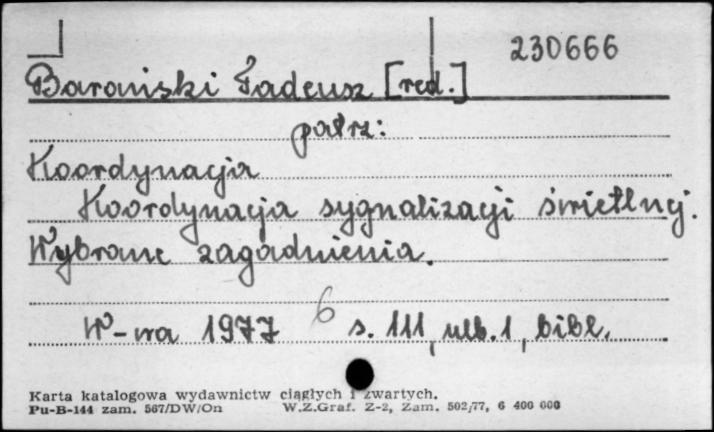 230666
Barański Tadeusz [red.]
patrz:
Koordynacja
Koordynacja sygnalizacji świetlnej.
Wybrane zagadnienia.
W-wa 1977 6 s. 111, ulb. 1, bibl.
Karta katalogowa wydawnictw ciągłych i zwartych.
Pu-B-144 zam. 567/DW/On W.Z.Graf. Z-2, Zam. 502/77, 6 400 000